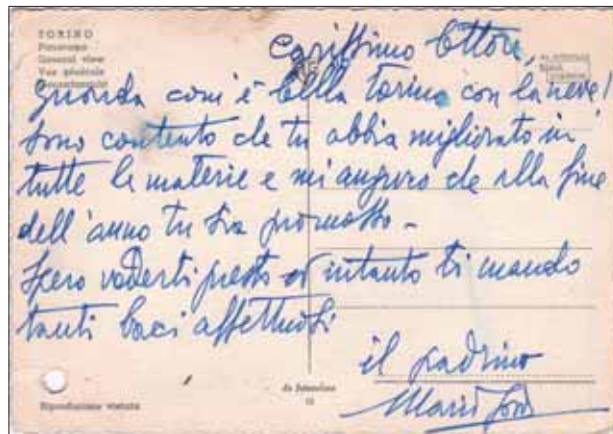 TORINO
Panorama
General view
Vue générale
Carissimo Ettore,
Guarda com'è bella Torino con la neve!
Sono contento che tu abbia migliorato in
tutte le materie e mi auguro che alla fine
dell'anno tu sia promosso -
Spero vederti presto ed intanto ti mando
tanti baci affettuosi
il padrino
Mario
Riproduzione vietata